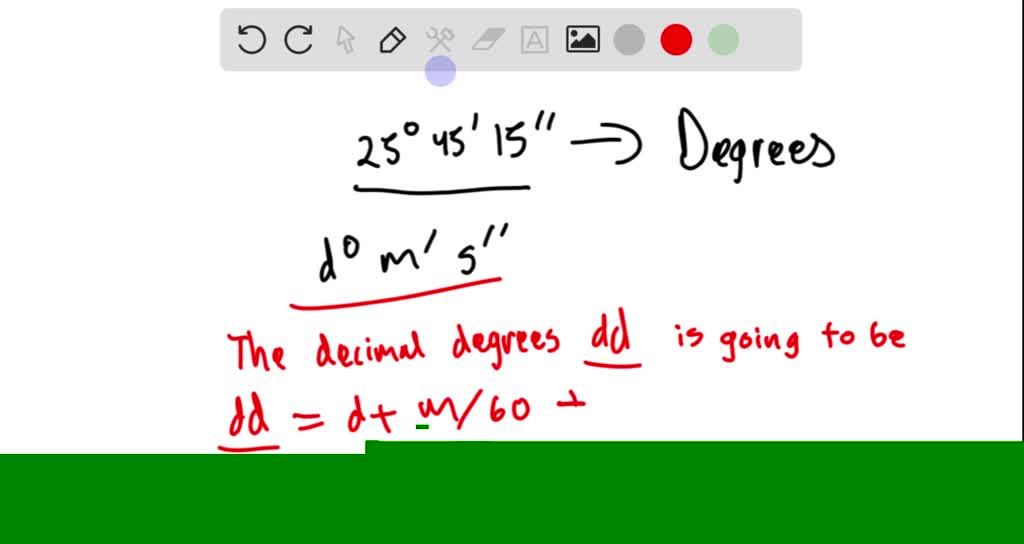 25° 45' 15" → Degrees
d° m' s"
The decimal degrees dd is going to be
dd = d + m/60 +